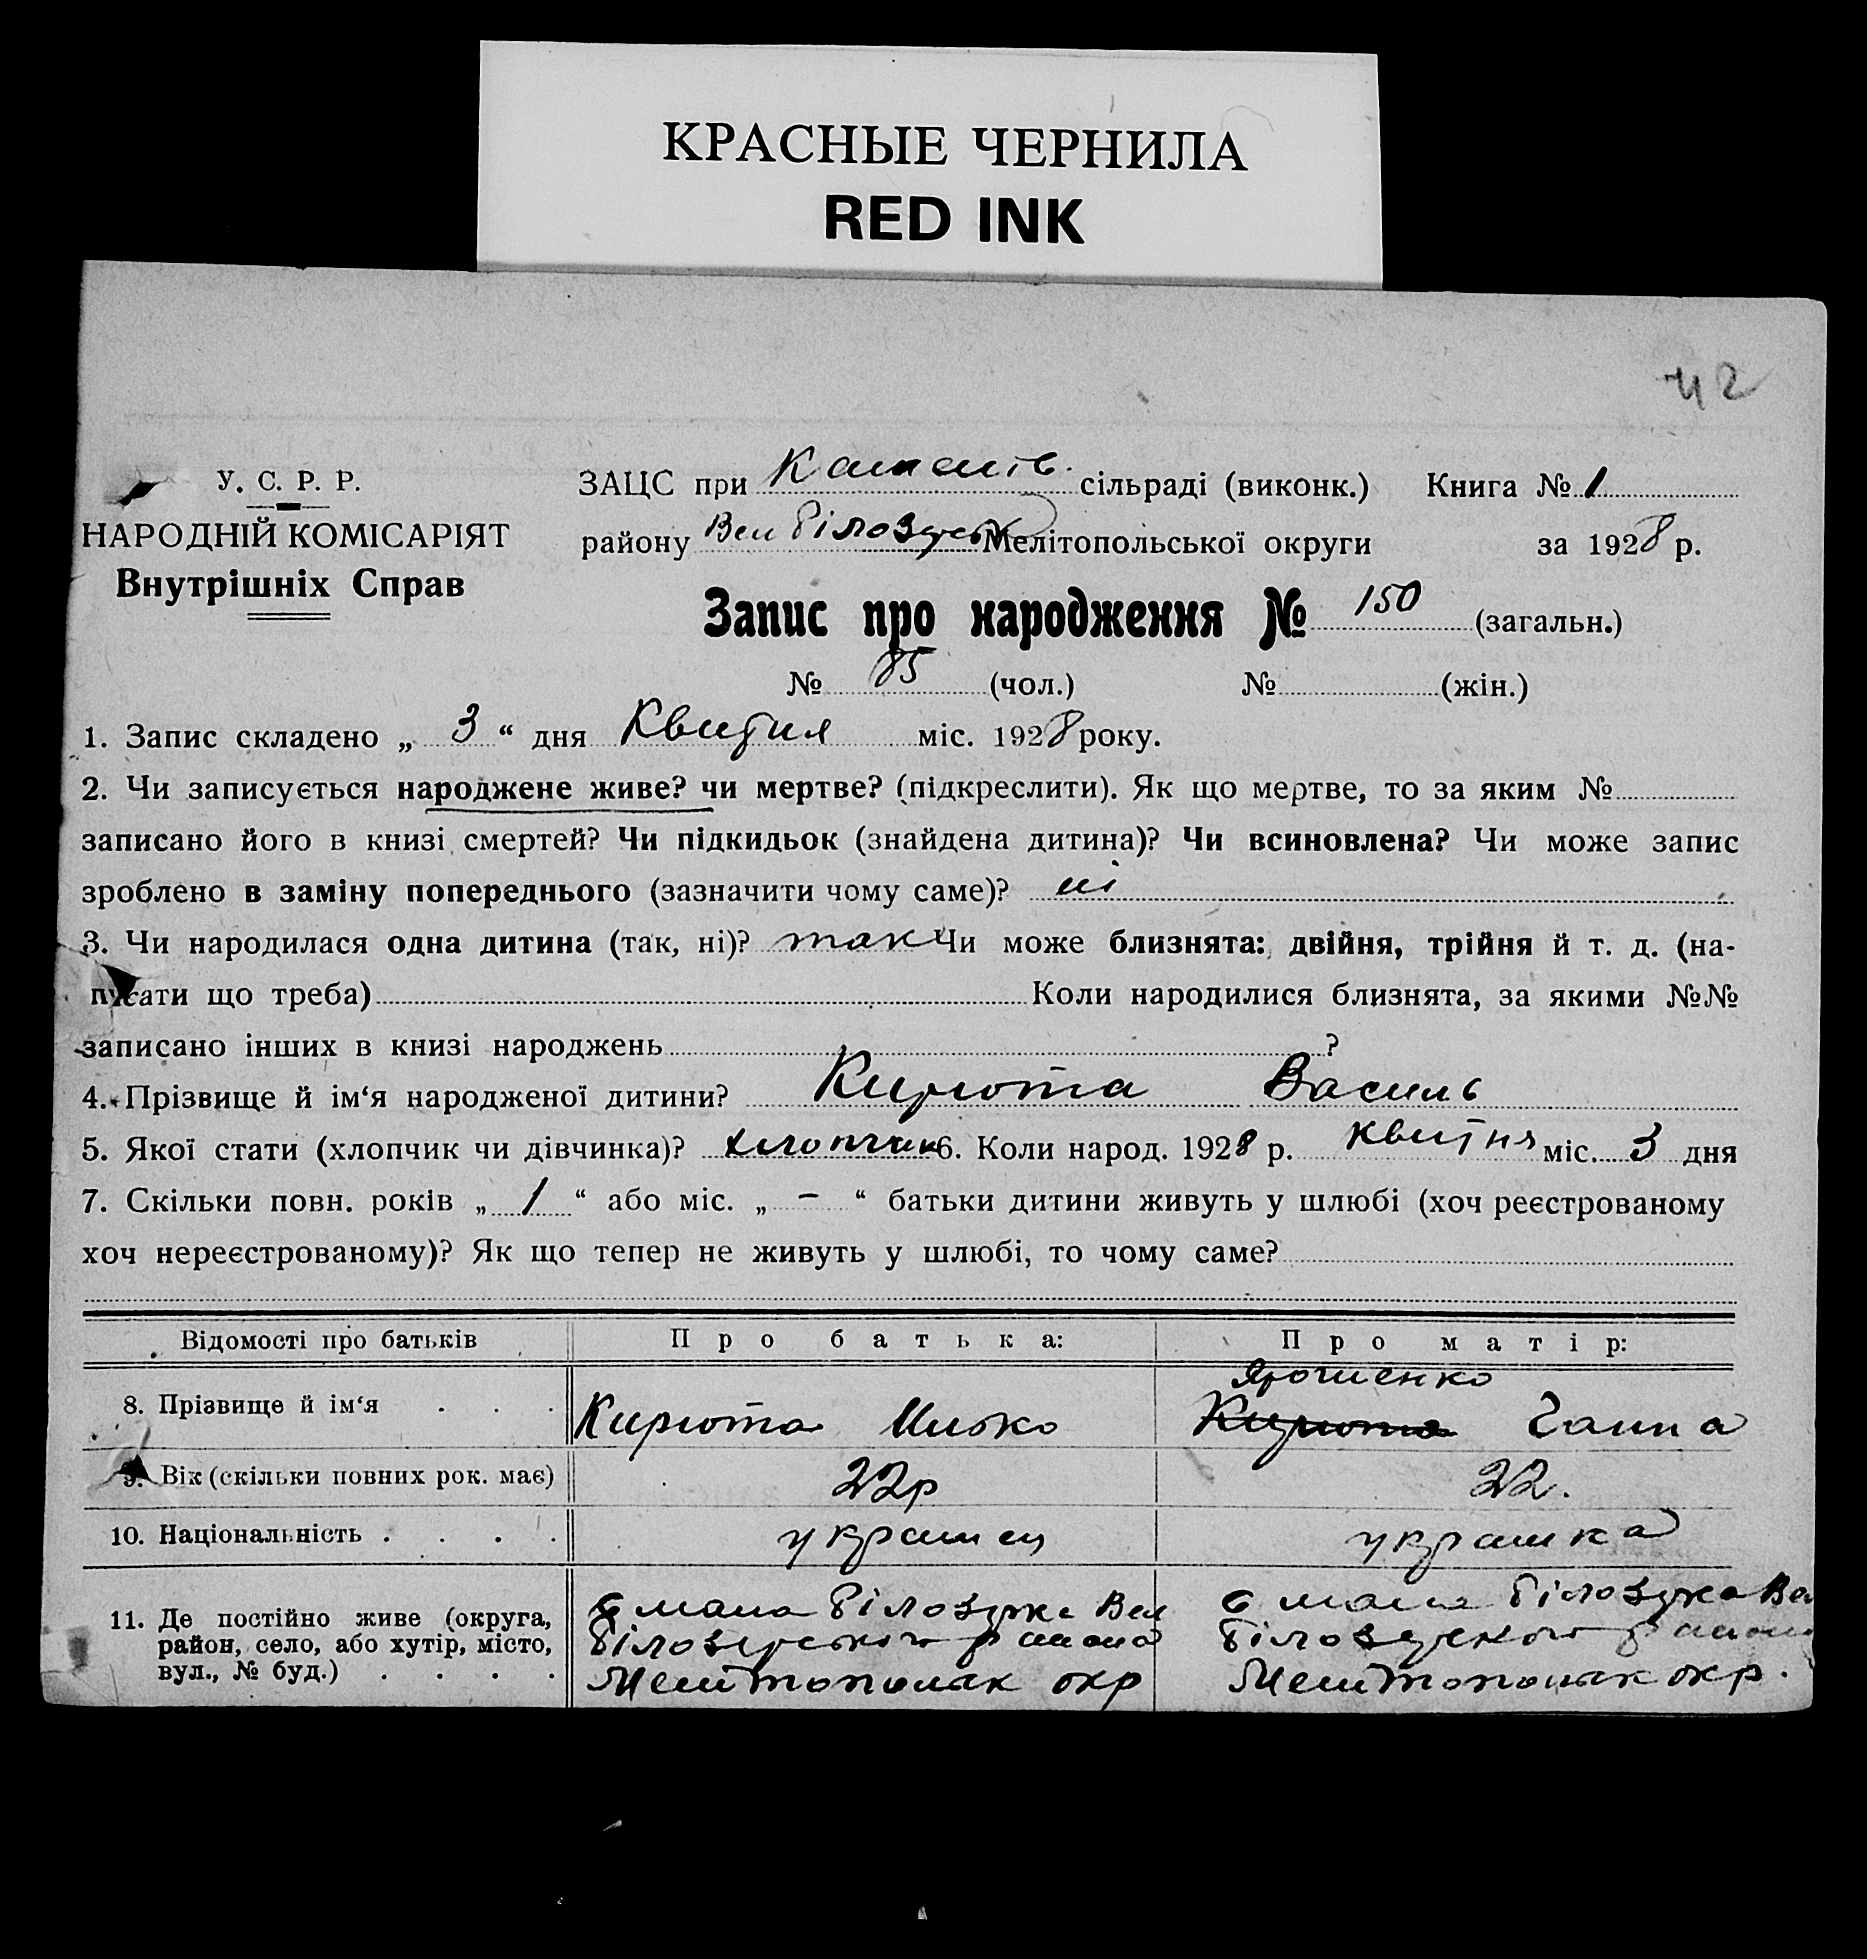 КРАСНЫЕ ЧЕРНИЛА
RED INK
42
У. С. Р. Р.
НАРОДНІЙ КОМІСАРІЯТ
Внутрішніх Справ
ЗАЦС при сільраді (виконк.) Книга № 1
району Вел Білозерськ Мелітопольської округи за 1928 р.
Запис про народження № 150 (загальн.)
№ 85 (чол.) № (жін.)
1. Запис складено „ 3 “ дня Квітня міс. 1928 року.
2. Чи записується народжене живе? чи мертве? (підкреслити). Як що мертве, то за яким №
записано його в книзі смертей? Чи підкидьок (знайдена дитина)? Чи всиновлена? Чи може запис
зроблено в заміну попереднього (зазначити чому саме)? ні
3. Чи народилася одна дитина (так, ні)? так Чи може близнята: двійня, трійня й т. д. (на-
писати що треба) Коли народилися близнята, за якими №№
записано інших в книзі народжень ?
4. Прізвище й ім‘я народженої дитини? Кирюта Василь
5. Якої стати (хлопчик чи дівчинка)? хлопчик 6. Коли народ. 1928 р. квітня міс. 3 дня
7. Скільки повн. років „ 1 “ або міс. „ – “ батьки дитини живуть у шлюбі (хоч реєстрованому
хоч нереєстрованому)? Як що тепер не живуть у шлюбі, то чому саме?
Відомості про батьків Про батька: Про матір:
Ярошенко
8. Прізвище й ім‘я . . . Кирюта Мисько Кирюта Ганна
9. Вік (скільки повних рок. має) 22р 22.
10. Національність . . . . українец українка
11. Де постійно живе (округа, район, село, або хутір, місто, вул., № буд.) . . . .
с мала Білозерка Вел
Білозерського району
Мелітопольск окр
с мала Білозерка Вел
Білозерского району
Мелітопольск окр.